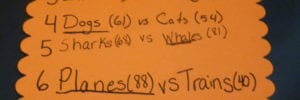 4 Dogs (61) vs Cats (54)
5 Sharks (68) vs Whales (81)
6 Planes (88) vs Trains (40)